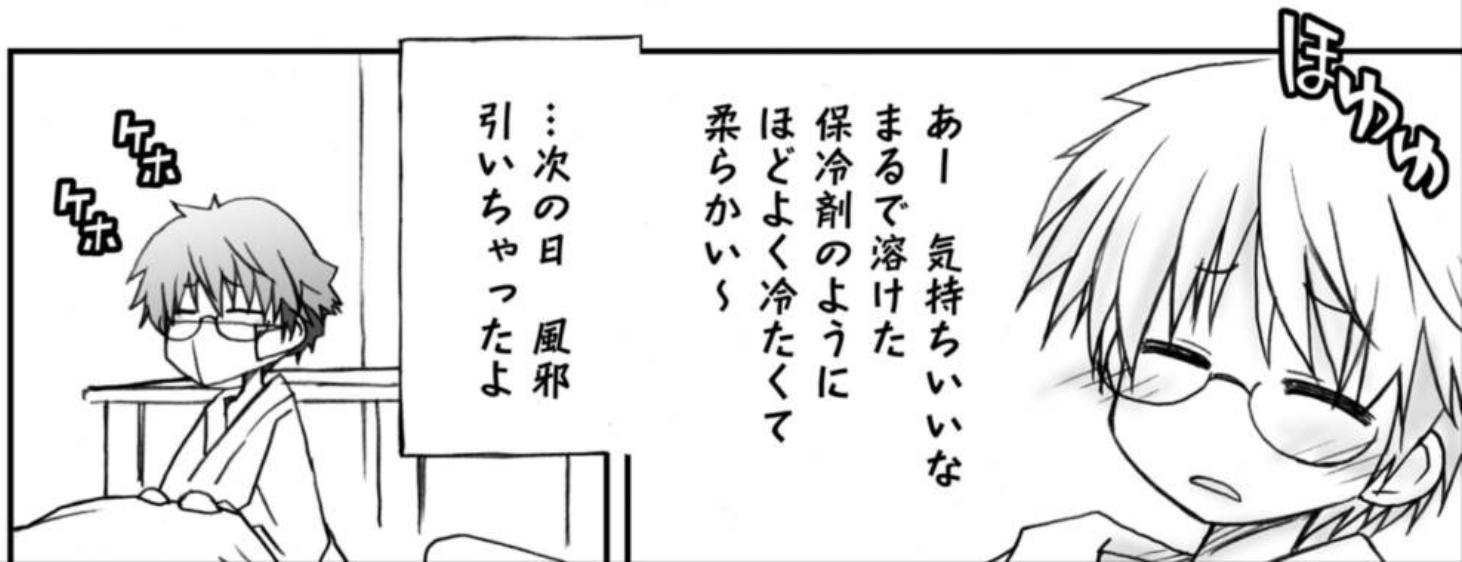 ほゆゆ
あー　気持ちいいな
まるで溶けた
保冷剤のように
ほどよく冷たくて
柔らかい〜
…次の日　風邪
引いちゃったよ
ケホ
ケホ